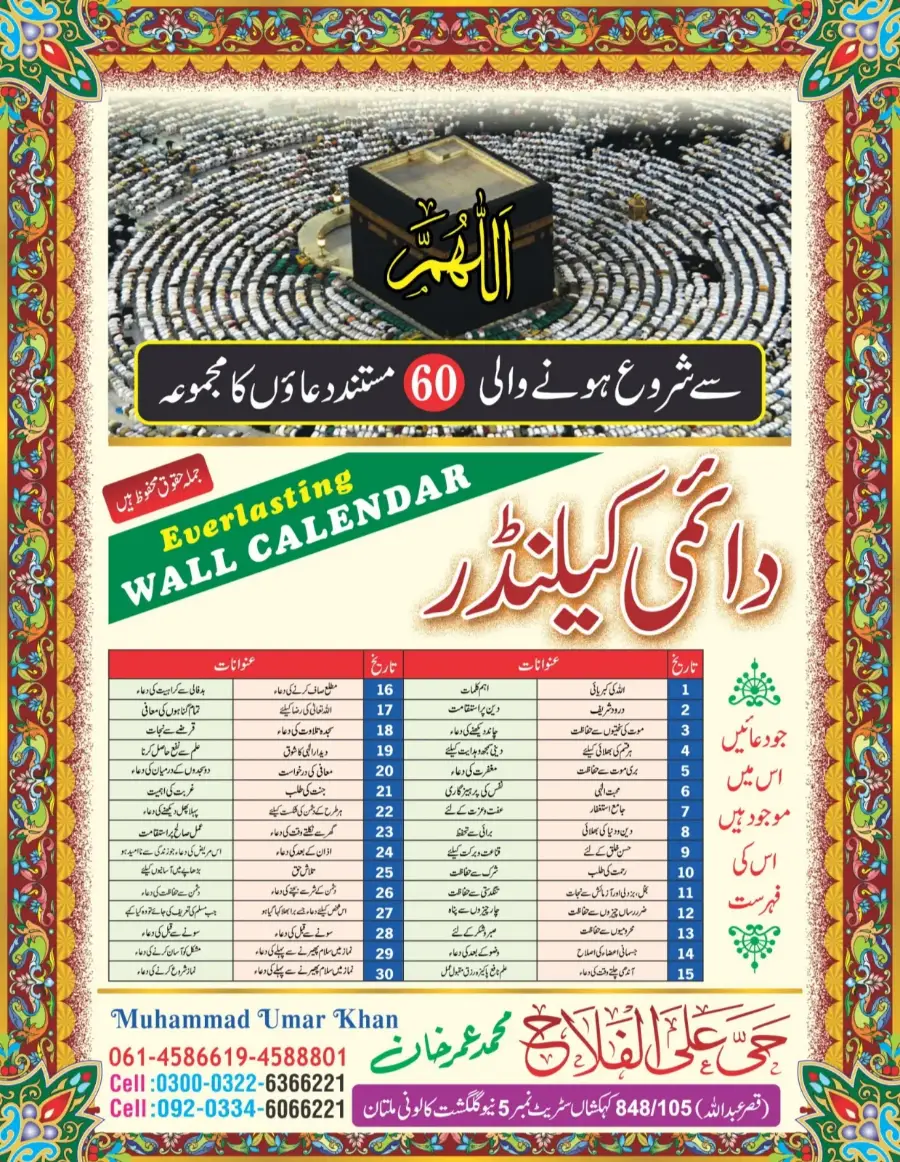 اَللّٰهُمَّ
سے شروع ہونے والی 60 مستند دعاؤں کا مجموعہ
جملہ حقوق محفوظ ہیں
Everlasting
WALL CALENDAR
دائمی کیلنڈر
تاریخ عنوانات تاریخ عنوانات
1 اللہ کی کبریائی اہم کلمات 16 مطلع صاف کرنے کی دعاء بدفالی سے کراہیت کی دعاء
2 درود شریف دین پر استقامت 17 اللہ تعالیٰ کی رضا کیلئے تمام گناہوں کی معافی
3 موت کی سختیوں سے حفاظت چاند دیکھنے کی دعاء 18 سجدہ تلاوت کی دعاء قرضے سے نجات
4 ہر قسم کی بھلائی کیلئے دینی سمجھ و ہدایت کیلئے 19 دیدار الٰہی کا شوق علم سے نفع حاصل کرنا
5 بری موت سے حفاظت مغفرت کی دعاء 20 معافی کی درخواست دو سجدوں کے درمیان کی دعاء
6 محبت الٰہی نفس کی پرہیزگاری 21 جنت کی طلب غربت کی اہمیت
7 جامع استغفار عفت و عزت کے لئے 22 ہر طرح کے دشمن کی شکست کیلئے پہلا پھل دیکھنے کی دعاء
8 دین و دنیا کی بھلائی برائی سے تحفظ 23 گھر سے نکلتے وقت کی دعاء عمل صالح پر استقامت
9 حسن خلق کے لئے قناعت و برکت کیلئے 24 اذان کے بعد کی دعاء اس مریض کی دعاء جو زندگی سے ناامید ہو
10 رحمت کی طلب شرک سے حفاظت 25 تلاش حق بڑھاپے میں آسانیوں کیلئے
11 بخل، بزدلی اور آزمائش سے نجات تنگدستی سے حفاظت 26 دشمن کے شر سے بچنے کی دعاء دشمن سے حفاظت کی دعاء
12 ضرر رساں چیزوں سے حفاظت چار چیزوں سے پناہ 27 اس شخص کیلئے دعاء جسے برا بھلا کہا گیا ہو جب مسلم کی تعریف کی جائے تو وہ کیا کہے
13 محرومیوں سے حفاظت صبر و شکر کے لئے 28 سونے سے قبل کی دعاء سونے سے قبل کی دعاء
14 جسمانی اعضاء کی اصلاح وضو کے بعد کی دعاء 29 نماز میں سلام پھیرنے سے پہلے کی دعاء مشکل کو آسان کرنے کی دعاء
15 آندھی چلتے وقت کی دعاء علم نافع پاکیزہ رزق مقبول عمل 30 نماز میں سلام پھیرنے سے پہلے کی دعاء نماز شروع کرنے کی دعاء
جو دعائیں
اس میں
موجود ہیں
اس کی
فہرست
حَیَّ عَلَی الْفَلَاح
محمد عمر خان
Muhammad Umar Khan
061-4586619-4588801
Cell :0300-0322-6366221
Cell :092-0334-6066221
(قصر عبداللہ) 848/105 کہکشاں سٹریٹ نمبر 5 نیو گلگشت کالونی ملتان